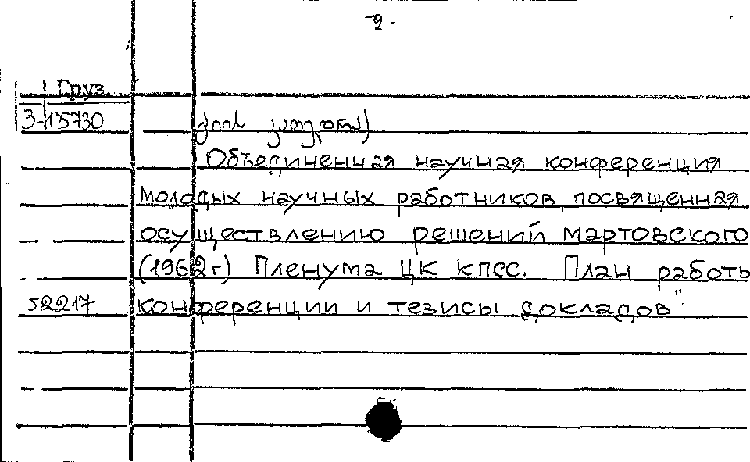 -2-
Груз.
3-15730
Объединенная научная конференция
молодых научных работников, посвященная
осуществлению решений мартовского
(1962г) Пленума ЦК КПСС. План работы
52217 конференции и тезисы докладов"